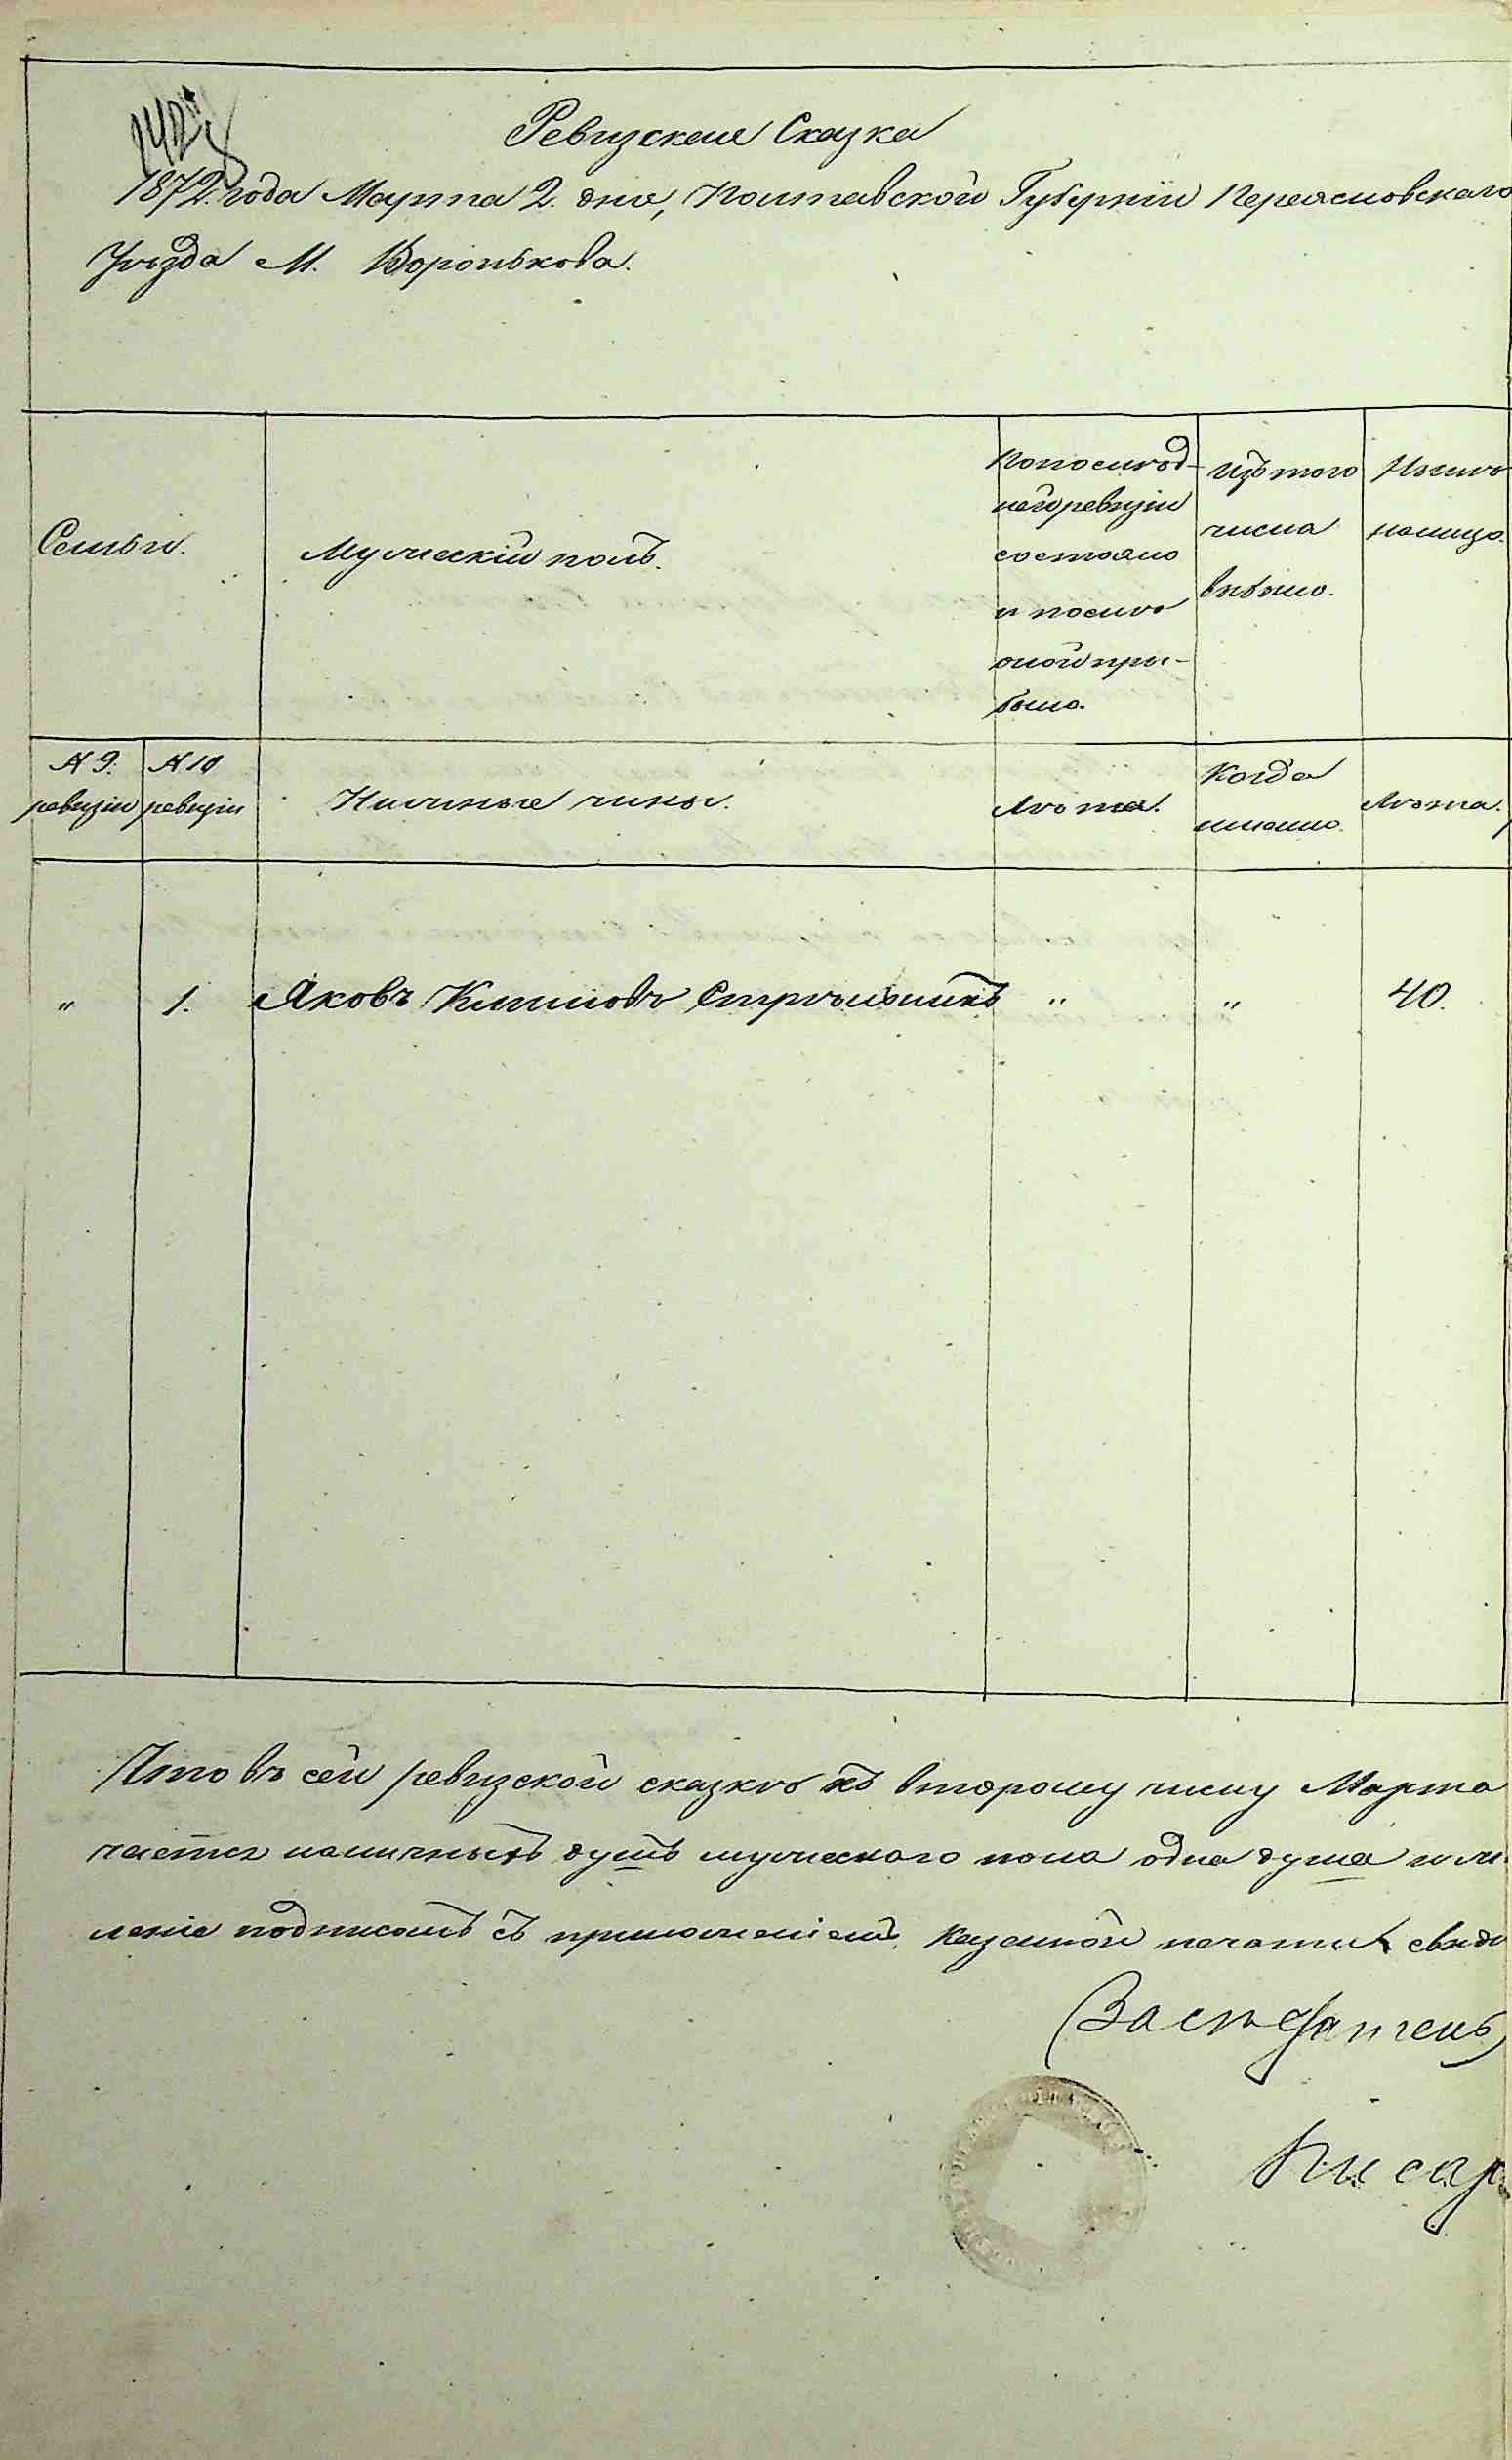 142
Ревизская Сказка
1872 года Марта 2. дня, Полтавской Губерніи Переясловскаго
Уѣзда М. Воронькова.
Семьи.
Мужескій полъ.
По послѣд-
ней ревизіи
состояло
и послѣ
оной при-
было.
Изъ того
числа
выбыло.
Нынѣ
налицо.
№ 9.
ревизіи
№ 10
ревизіи
Нижные чины.
Лѣта.
Когда
именно.
Лѣта.
„ 1. Яковъ Климовъ Стрѣльникъ „ „ 40.
Что въ сей ревизской сказкѣ къ второму числу Марта
чается наличныхъ душъ мужескаго пола одна душа и
леніе подписомъ съ приложеніемъ казенной печати свиде
Засѣдатель
Писар